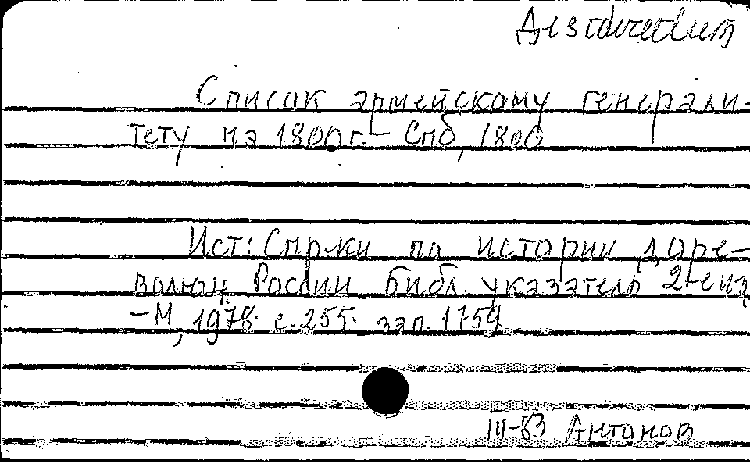 Desiderata
Список армейскому генерали-
тету на 1800 г. – Спб, 1800
Ист: Спр-ки по истории доре-
волюц России Библ. указатель 2-е из
– М, 1978. с. 255. зап. 1754
III-83 Антонов